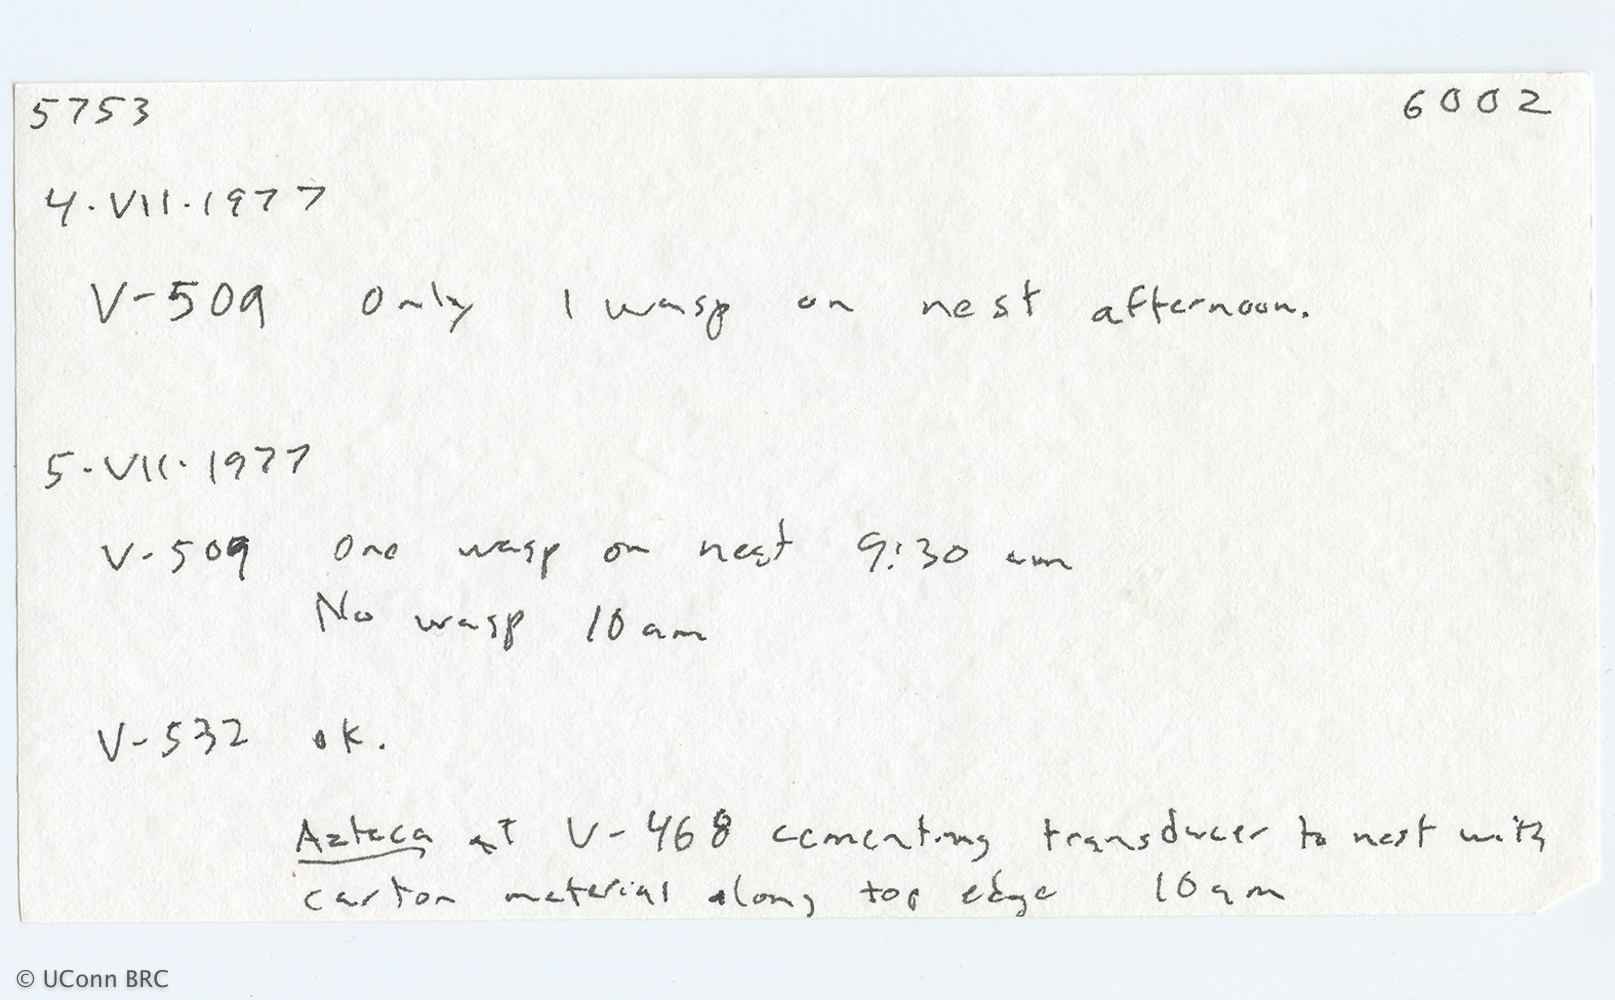 5753 6002
4.VII.1977
V-509 Only 1 wasp on nest afternoon.
5.VII.1977
V-509 One wasp on nest 9:30 am
No wasp 10 am
V-532 ok.
Azteca at V-468 cementing transducer to nest with
carton material along top edge 10 am
© UConn BRC